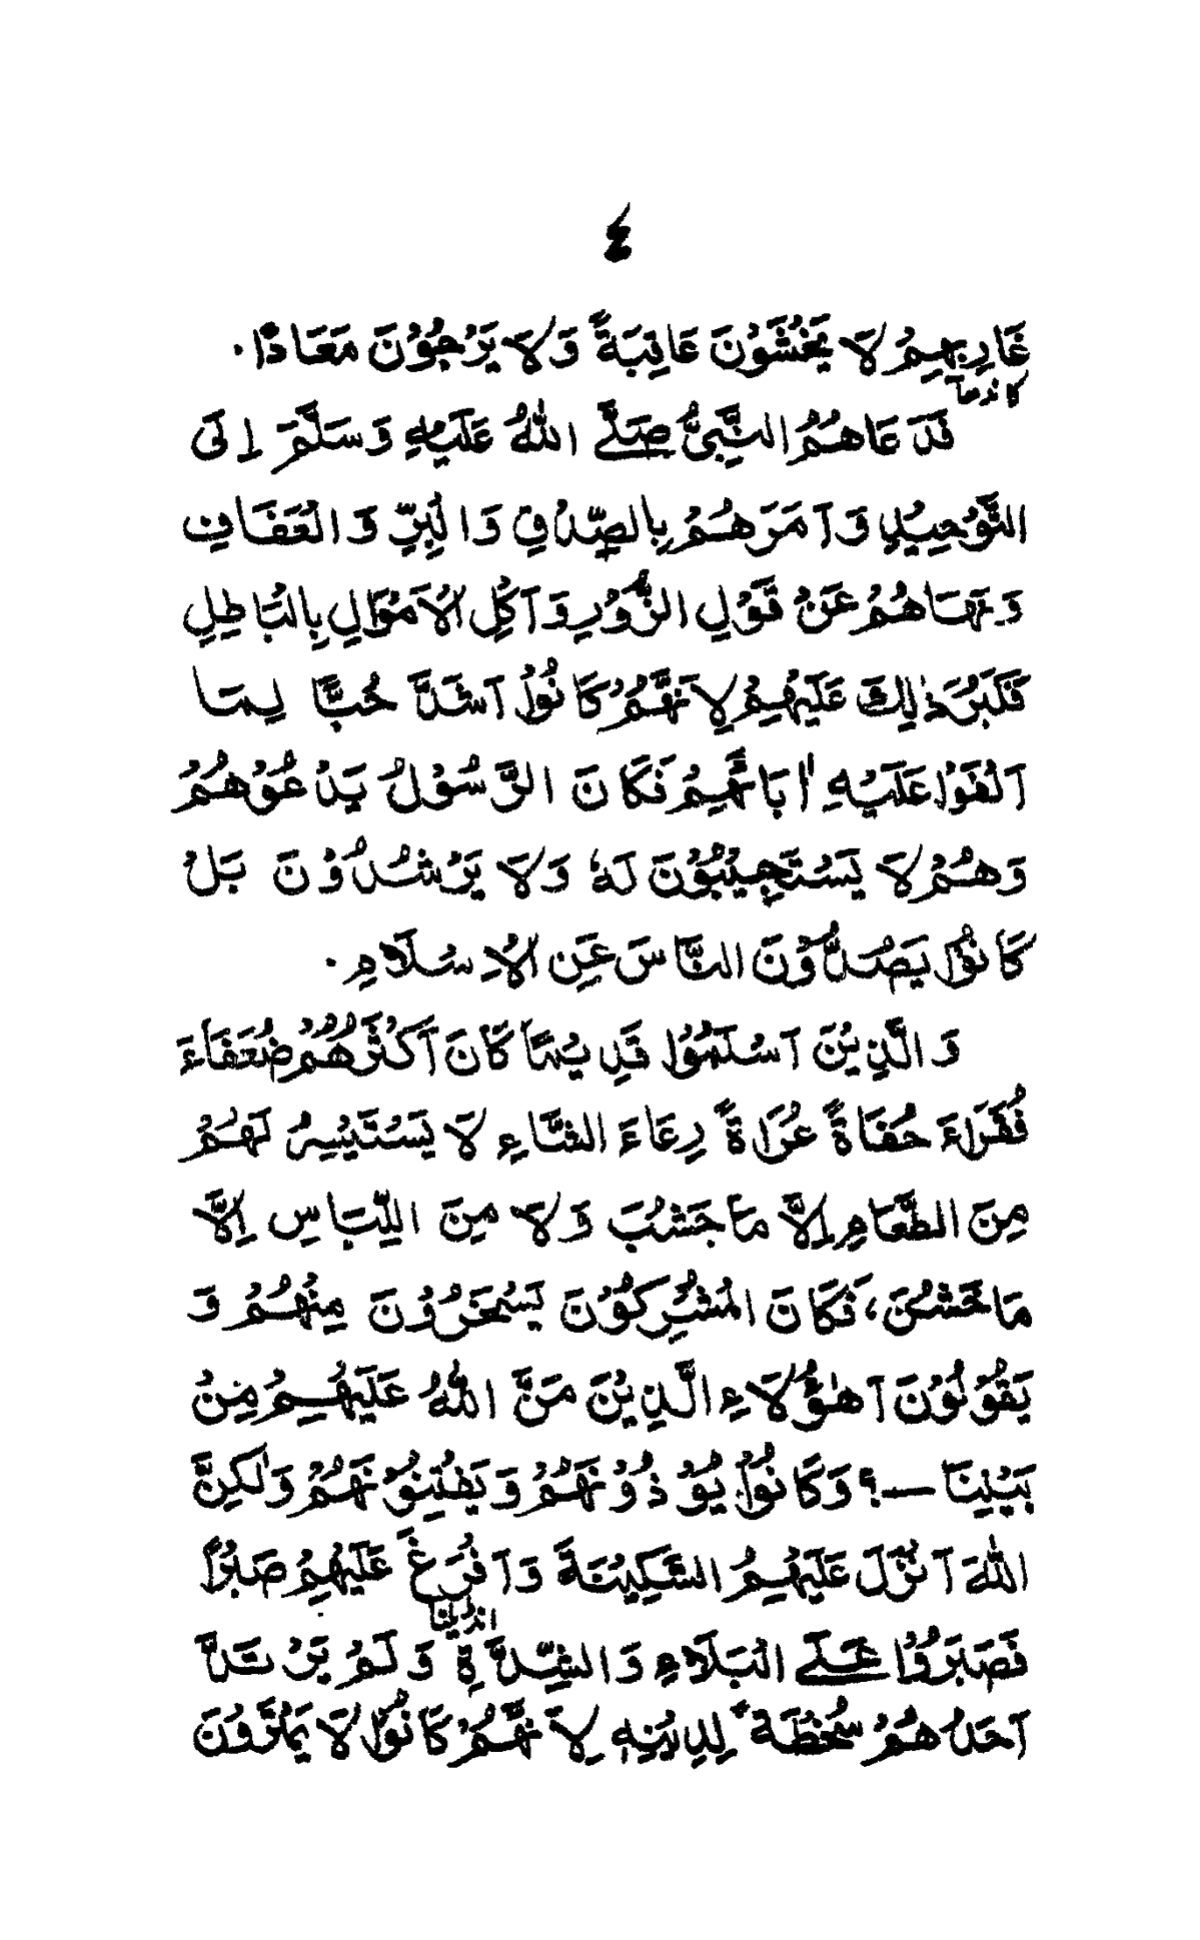 ٤
غَارِبِهِمْ لَا يَخْشَوْنَ عَاقِبَةً وَلَا يَرْجُوْنَ مَعَادًا.
فَدَعَاهُمُ النَّبِيُّ صَلَّى اللهُ عَلَيْهِ وَسَلَّمَ إِلَى
التَّوْحِيْدِ وَآمَرَهُمْ بِالصِّدْقِ وَالْبِرِّ وَالْعَفَافِ
وَنَهَاهُمْ عَنْ قَوْلِ الزُّوْرِ وَآكْلِ الْاَمْوَالِ بِالْبَاطِلِ
فَكَبُرَ ذٰلِكَ عَلَيْهِمْ لِاَنَّهُمْ كَانُوْا آشَدَّ حُبًّا لِمَا
اَلْفَوْا عَلَيْهِ اٰبَائَهُمْ فَكَانَ الرَّسُوْلُ يَدْعُوْهُمْ
وَهُمْ لَا يَسْتَجِيْبُوْنَ لَهٗ وَلَا يَرْشُدُوْنَ بَلْ
كَانُوْا يَصُدُّوْنَ النَّاسَ عَنِ الْاِسْلَامِ.
وَالَّذِيْنَ آسْلَمُوْا قَدِيْمًا كَانَ آكْثَرُهُمْ ضُعَفَاءَ
فُقَرَاءَ حُفَاةً عُرَاةً رِعَاءَ الشَّاءِ لَا يَسْتَيْسِرُ لَهُمْ
مِنَ الطَّعَامِ اِلَّا مَا جَشُبَ وَلَا مِنَ اللِّبَاسِ اِلَّا
مَا خَشُنَ، فَكَانَ الْمُشْرِكُوْنَ يَسْخَرُوْنَ مِنْهُمْ وَ
يَقُوْلُوْنَ آهٰؤُلَاءِ الَّذِيْنَ مَنَّ اللهُ عَلَيْهِمْ مِنْ
بَيْنِنَا —؟ وَكَانُوْا يُوْذُوْنَهُمْ وَيَفْتِنُوْنَهُمْ وَلٰكِنَّ
اللهَ آنْزَلَ عَلَيْهِمُ السَّكِيْنَةَ وَآفْرَغَ عَلَيْهِمْ صَبْرًا
فَصَبَرُوْا عَلَى الْبَلَاءِ وَالشِّدَّةِ وَلَمْ يَرْتَدَّ
آحَدُهُمْ سُخْطَةً لِدِيْنِهِ لِاَنَّهُمْ كَانُوْا لَا يَمْتَرُوْنَ